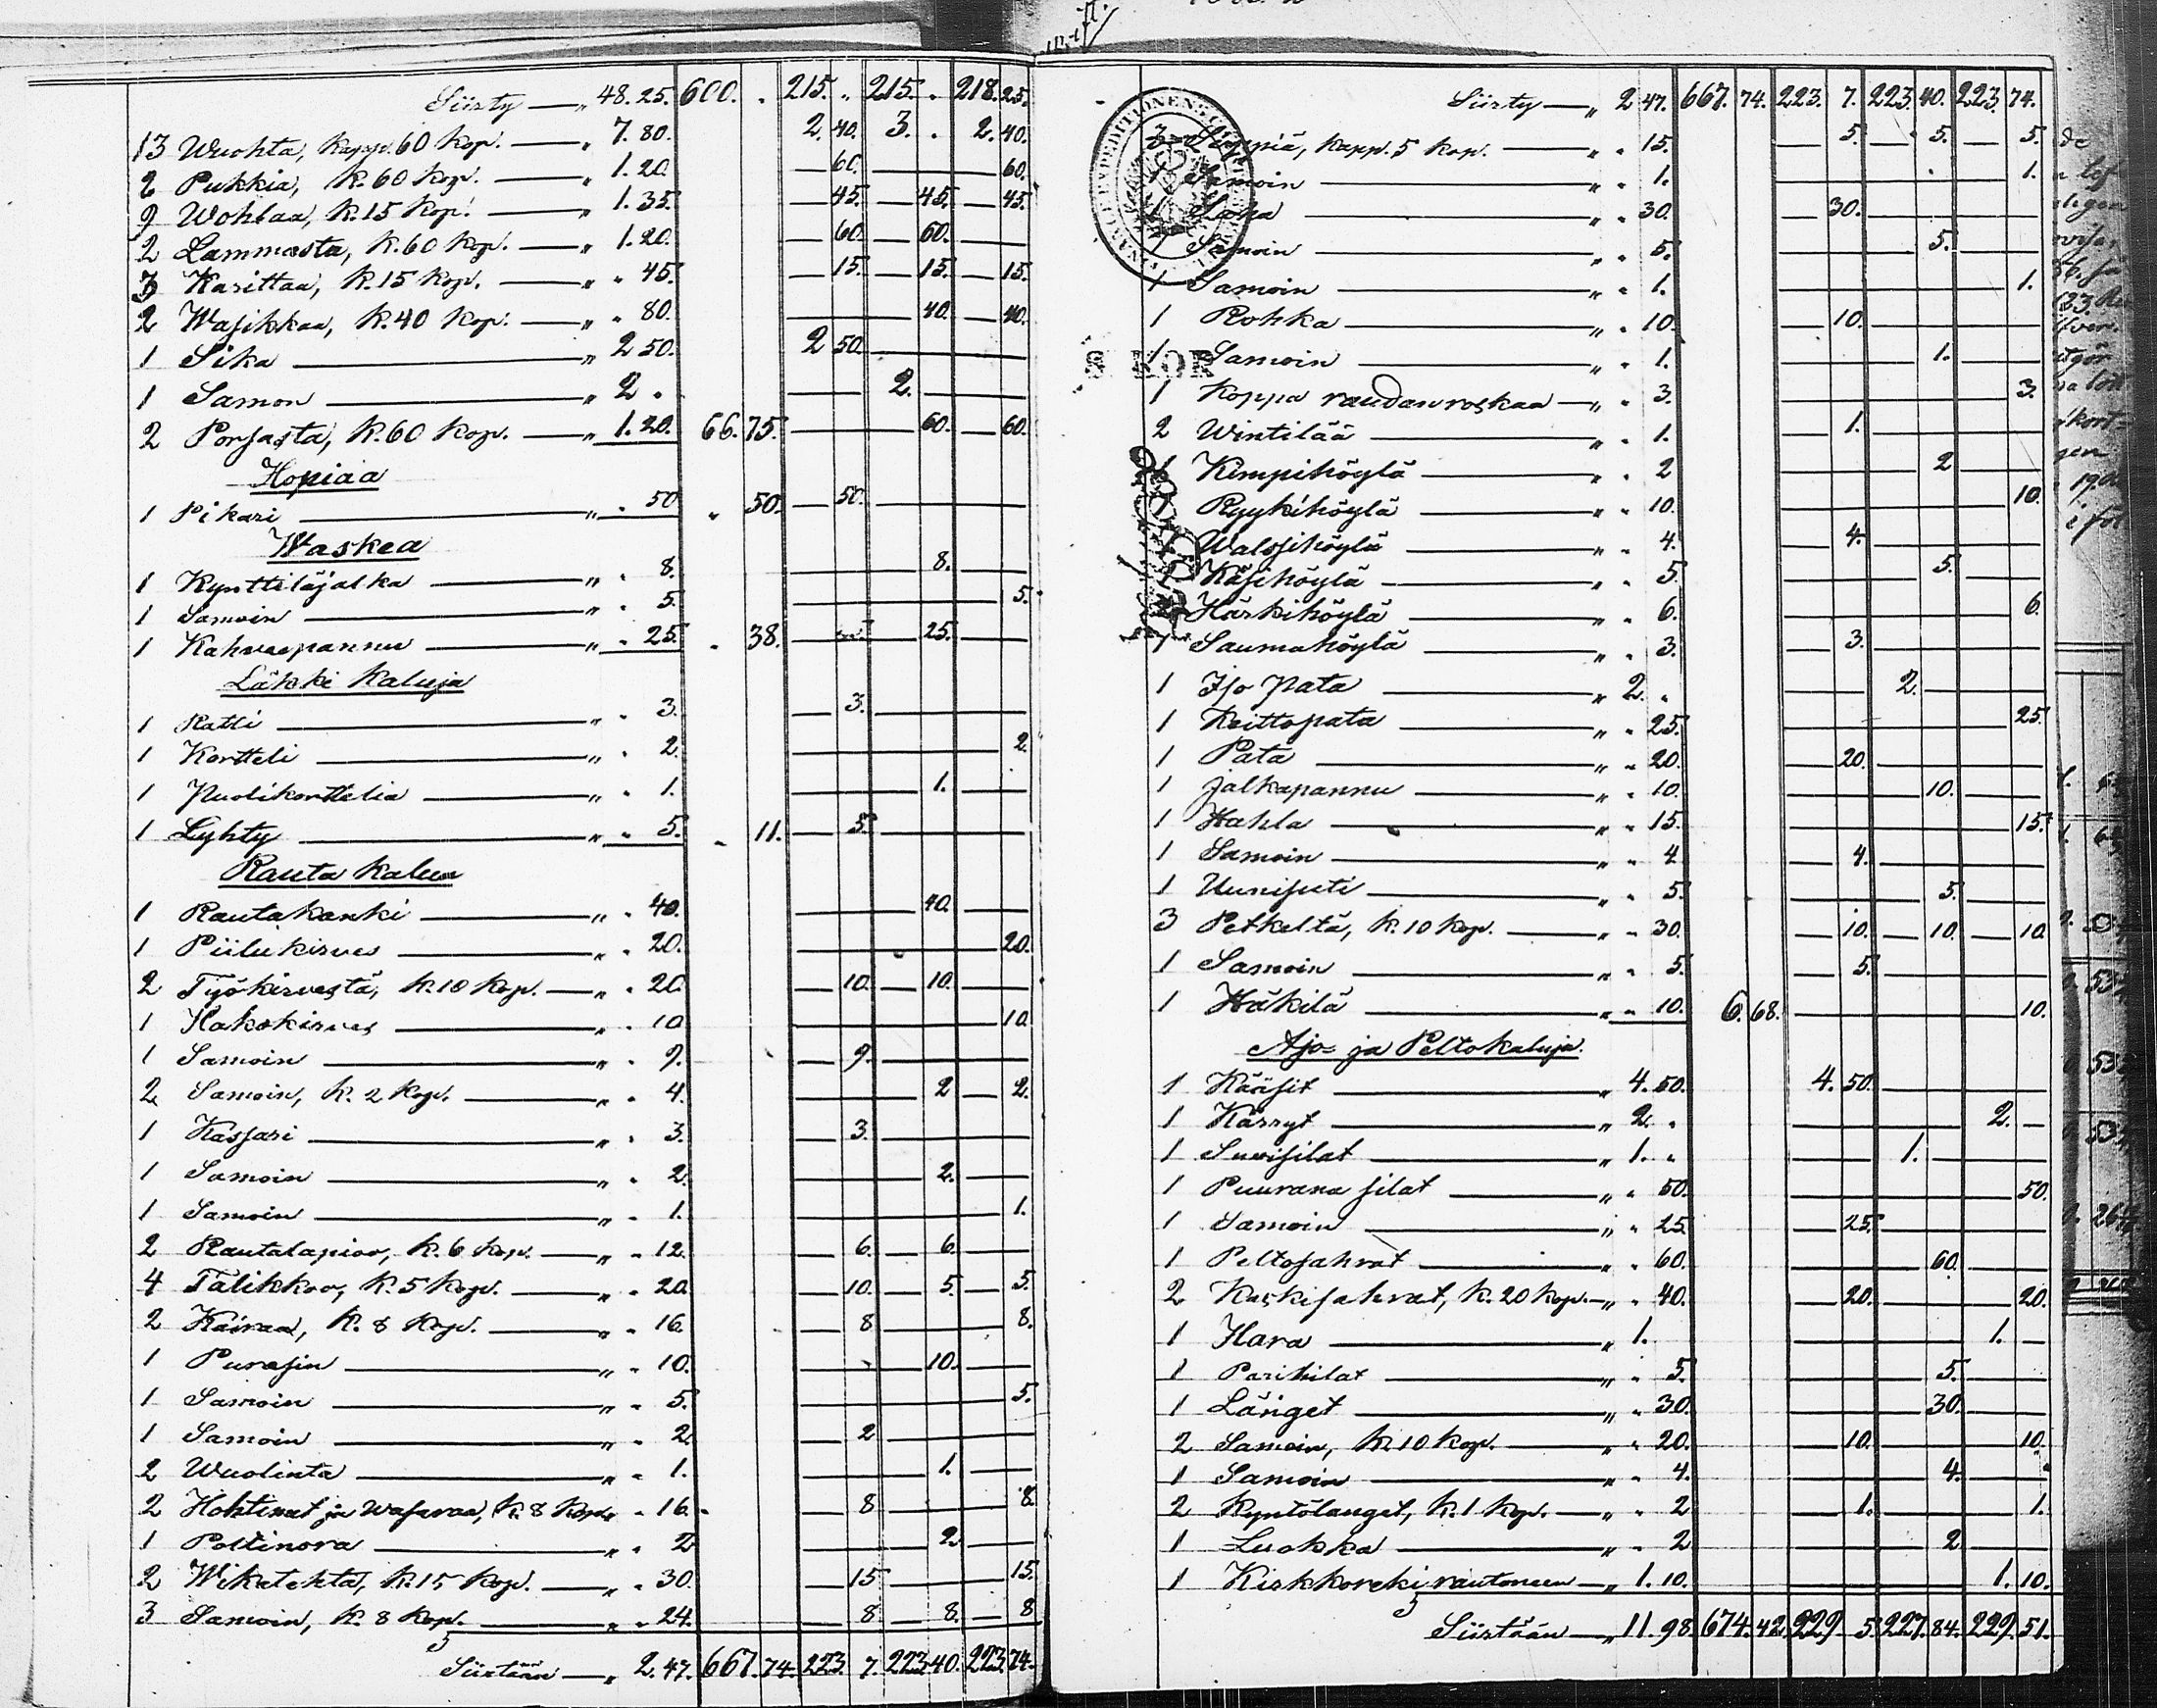 Siirty — „ 48. 25. 600. „ 215. „ 215. „ 218. 25.
13 Wuohta, kapp. 60 Kop. — „ 7. 80. 2. 40. 3. „ 2. 40.
2 Pukkia, K. 60 Kop. — „ 1. 20. — 60. — 60.
9 Wohlaa, K. 15 Kop. — „ 1. 35. — 45. — 45. — 45.
2 Lammasta, K. 60 Kop. — „ 1. 20. — 60. — 60.
3 Karittaa, K. 15 Kop. — „ „ 45. — 15. — 15. — 15.
2 Wasikkaa, K. 40 Kop. — „ „ 80. — 40. — 40.
1 Sika — „ 2 50. 2 50. —
1 Samon — „ 2 „ — 2. —
2 Porsasta, K. 60 Kop. — „ 1. 20. 66. 75. — 60. — 60.
Hopiaa
1 Pikari — „ „ 50 „ 50. — 50. —
Waskea
1 Kynttiläjalka — „ „ 8. — 8. —
1 Samoin — „ „ 5. — 5.
1 Kahveepannu — „ „ 25. „ 38. — 25. —
Läkki Kaluja
1 Ratti — „ „ 3. — 3. —
1 Kortteli — „ „ 2. — 2.
1 Puolikorttelia — „ „ 1. — 1. —
1 Lyhty — „ „ 5. „ 11. — 5. —
Rauta Kalua
1 Rautakanki — „ „ 40. — 40. —
1 Piilukirves — „ „ 20. — 20.
2 Työkirvestä, K. 10 Kop. — „ „ 20. — 10. — 10. —
1 Hakokirves — „ „ 10 — 10.
1 Samoin — „ „ 9. — 9. —
2 Samoin, K. 2 Kop. — „ „ 4. — 2 — 2.
1 Kassari — „ „ 3. — 3. —
1 Samoin — „ „ 2. — 2. —
1 Samoin — „ „ 1. — 1.
2 Rautalapioo, K. 6 Kop. — „ „ 12. — 6. — 6. —
4 Talikkoo, K. 5 Kop. — „ „ 20. — 10. — 5. — 5.
2 Kairaa, K. 8 Kop. — „ „ 16. — 8 — 8.
1 Purasin — „ „ 10. — 10. —
1 Samoin — „ „ 5. — 5.
1 Samoin — „ „ 2. — 2 —
2 Wuolinta — „ „ 1. — 1. —
2 Hohtimet ja Wasaraa, K. 8 Kop. „ „ 16. — 8 — 8
1 Poltinora — „ „ 2 — 2. —
2 Wikatehta, K. 15 Kop. — „ „ 30. — 15 — 15.
3 Samoin, K. 8 Kop. — „ „ 24. — 8 — 8. — 8
Siirtään — „ 2. 47. 667. 74. 223. 7. 223 40. 223. 74.
Siirty — „ 2 47. 667. 74. 223. 7. 223. 40. 223. 74.
kapp. 5 Kop. — „ „ 15. — 5. — 5. — 5.
Samoin — „ „ 1. — 1.
„ „ 30. — 30. —
1 Samoin — „ „ 5. — 5. —
1 Samoin — „ „ 1. — 1.
1 Rohka — „ „ 10. — 10. —
1 Samoin — „ „ 1. — 1. —
1 Koppa raudanroskaa — „ „ 3. — 3.
2 Wintilää — „ „ 1. — 1. —
1 Kimpihöylä — „ „ 2 — 2 —
Ryykihöylä — „ „ 10. — 10.
Walossihöylä — „ „ 4. — 4. —
Käsihöylä — „ „ 5. — 5. —
Härkihöylä — „ „ 6. — 6.
1 Saumahöylä — „ „ 3. — 3. —
1 Iso Pata — „ 2. „ — 2. —
1 Keittopata — „ „ 25. — 25.
1 Pata — „ „ 20. — 20. —
1 Jalkapannu — „ „ 10. — 10. —
1 Hahla — „ „ 15. — 15.
1 Samoin — „ „ 4 — 4. —
1 Uunisuti — „ „ 5. — 5. —
3 Petkeltä, K. 10 Kop. — „ „ 30. — 10. — 10. — 10
1 Samoin — „ „ 5. — 5. —
1 Häkilä — „ „ 10. 6. 68. — 10.
Ajo- ja Peltokaluja.
1 Kääsit — „ 4. 50. 4. 50. —
1 Kärryt — „ 2. „ — 2. —
1 Suvisilat — „ 1. „ — 1. —
1 Puurana silat — „ „ 50. — 50.
1 Samoin — „ „ 25 — 25. —
1 Peltosahrat — „ „ 60. — 60. —
2 Kaskisahrat, K. 20 Kop. — „ „ 40. — 20. — 20.
1 Hara — „ 1. — 1. —
1 Parihilat — „ „ 5. — 5. —
1 Länget — „ „ 30. — 30. —
2 Samoin, K. 10 Kop. — „ „ 20. — 10. — 10.
1 Samoin — „ „ 4. — 4. —
2 Kyntölänget, K. 1 Kop. — „ „ 2 — 1. — 1.
1 Luokka — „ „ 2 — 2 —
1 Kirkkoreki rautoneen — „ 1. 10. — 1. 10.
Siirtään — „ 11. 98 674. 42. 229. 5. 227. 84. 229. 51.